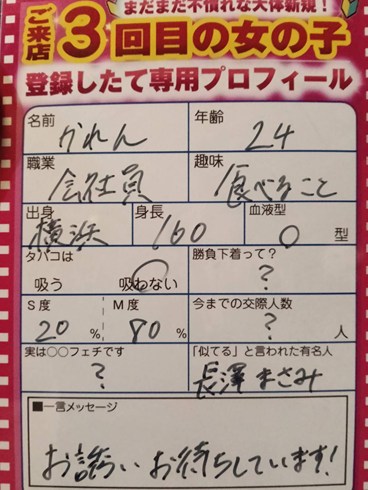 まだまだ不慣れな大体新規!
ご来店3回目の女の子
登録したて専用プロフィール
名前 かれん
年齢 24
職業 会社員
趣味 食べること
出身 横浜
身長 160
血液型 O 型
タバコは 吸う 吸わない
勝負下着って? ?
S度 20 %
M度 80 %
今までの交際人数 ? 人
実は○○フェチです ?
「似てる」と言われた有名人 長澤まさみ
■一言メッセージ
お誘いお待ちしています!